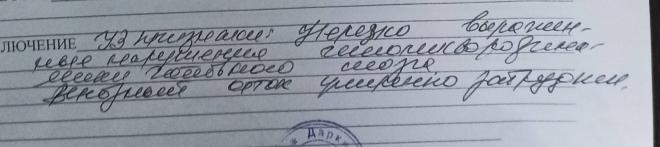 ЛЮЧЕНИЕ УЗ признаки: Нерезко выражен-
ные нарушения гемоликвородина-
мики головного мозга
Венозный отток умеренно затруднен.
Дарки